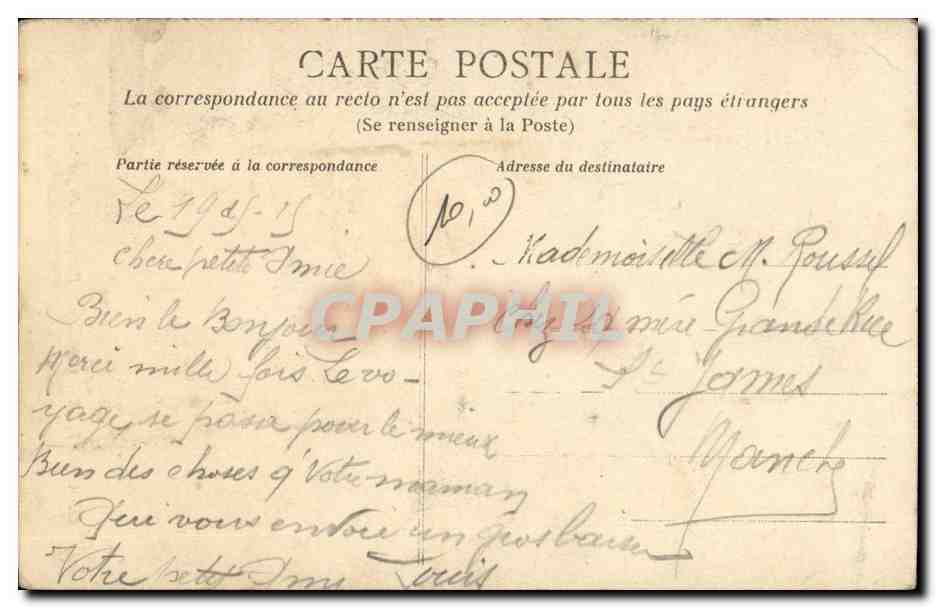 CARTE POSTALE
La correspondance au recto n'est pas acceptée par tous les pays étrangers
(Se renseigner à la Poste)
Partie réservée à la correspondance
Le 19
chere petite Amie
Bien le Bonjour
Merci mille fois Le vo-
yage se passa pour le mieux
Bien des choses a Votre maman
Qui vous envoie un gros baiser
Votre petit Ami Louis
Adresse du destinataire
Mademoiselle M. Roussel
Chez sa mère Grande Rue
St James
Manche
CPAPHIL